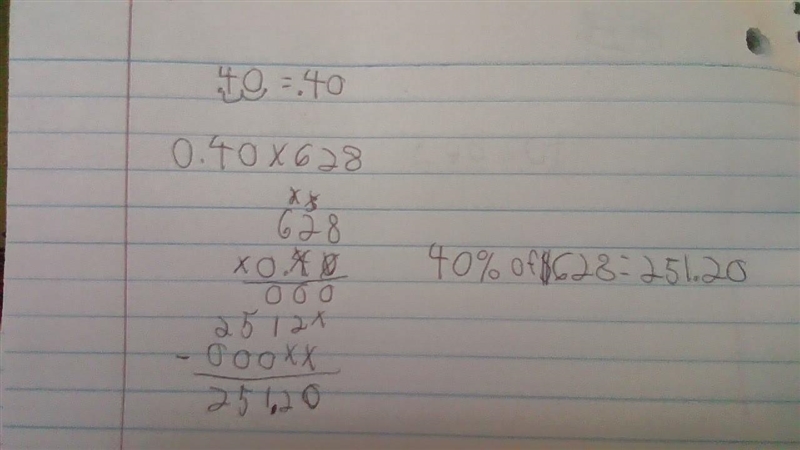 40 = .40
0.40 x 628
x x
628
x 0.40
000
2512x
- 000xx
251.20
40% of $628 = 251.20